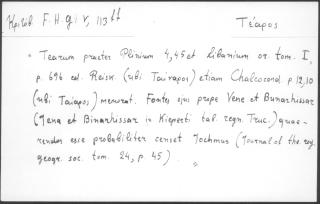 Κριτόβ. F. H. g. I V, 113 ff
Τέαρος
" Tearum praeter Plinium 4,45 et Libanium or. tom. I,
p. 696 ed. Reisk. (ubi Ταίναρος) etiam Chalcocond. p 12,10
(ubi Ταίαρος) memorat. Fontes ejus prope Vene et Bunarhissar
(Jena et Binarhissar in Kieperti tab. regn. Turc.) quae-
rendos esse probabiliter censet Jochmus (Journal of the roy.
geogr. soc. tom. 24, p 45) . "